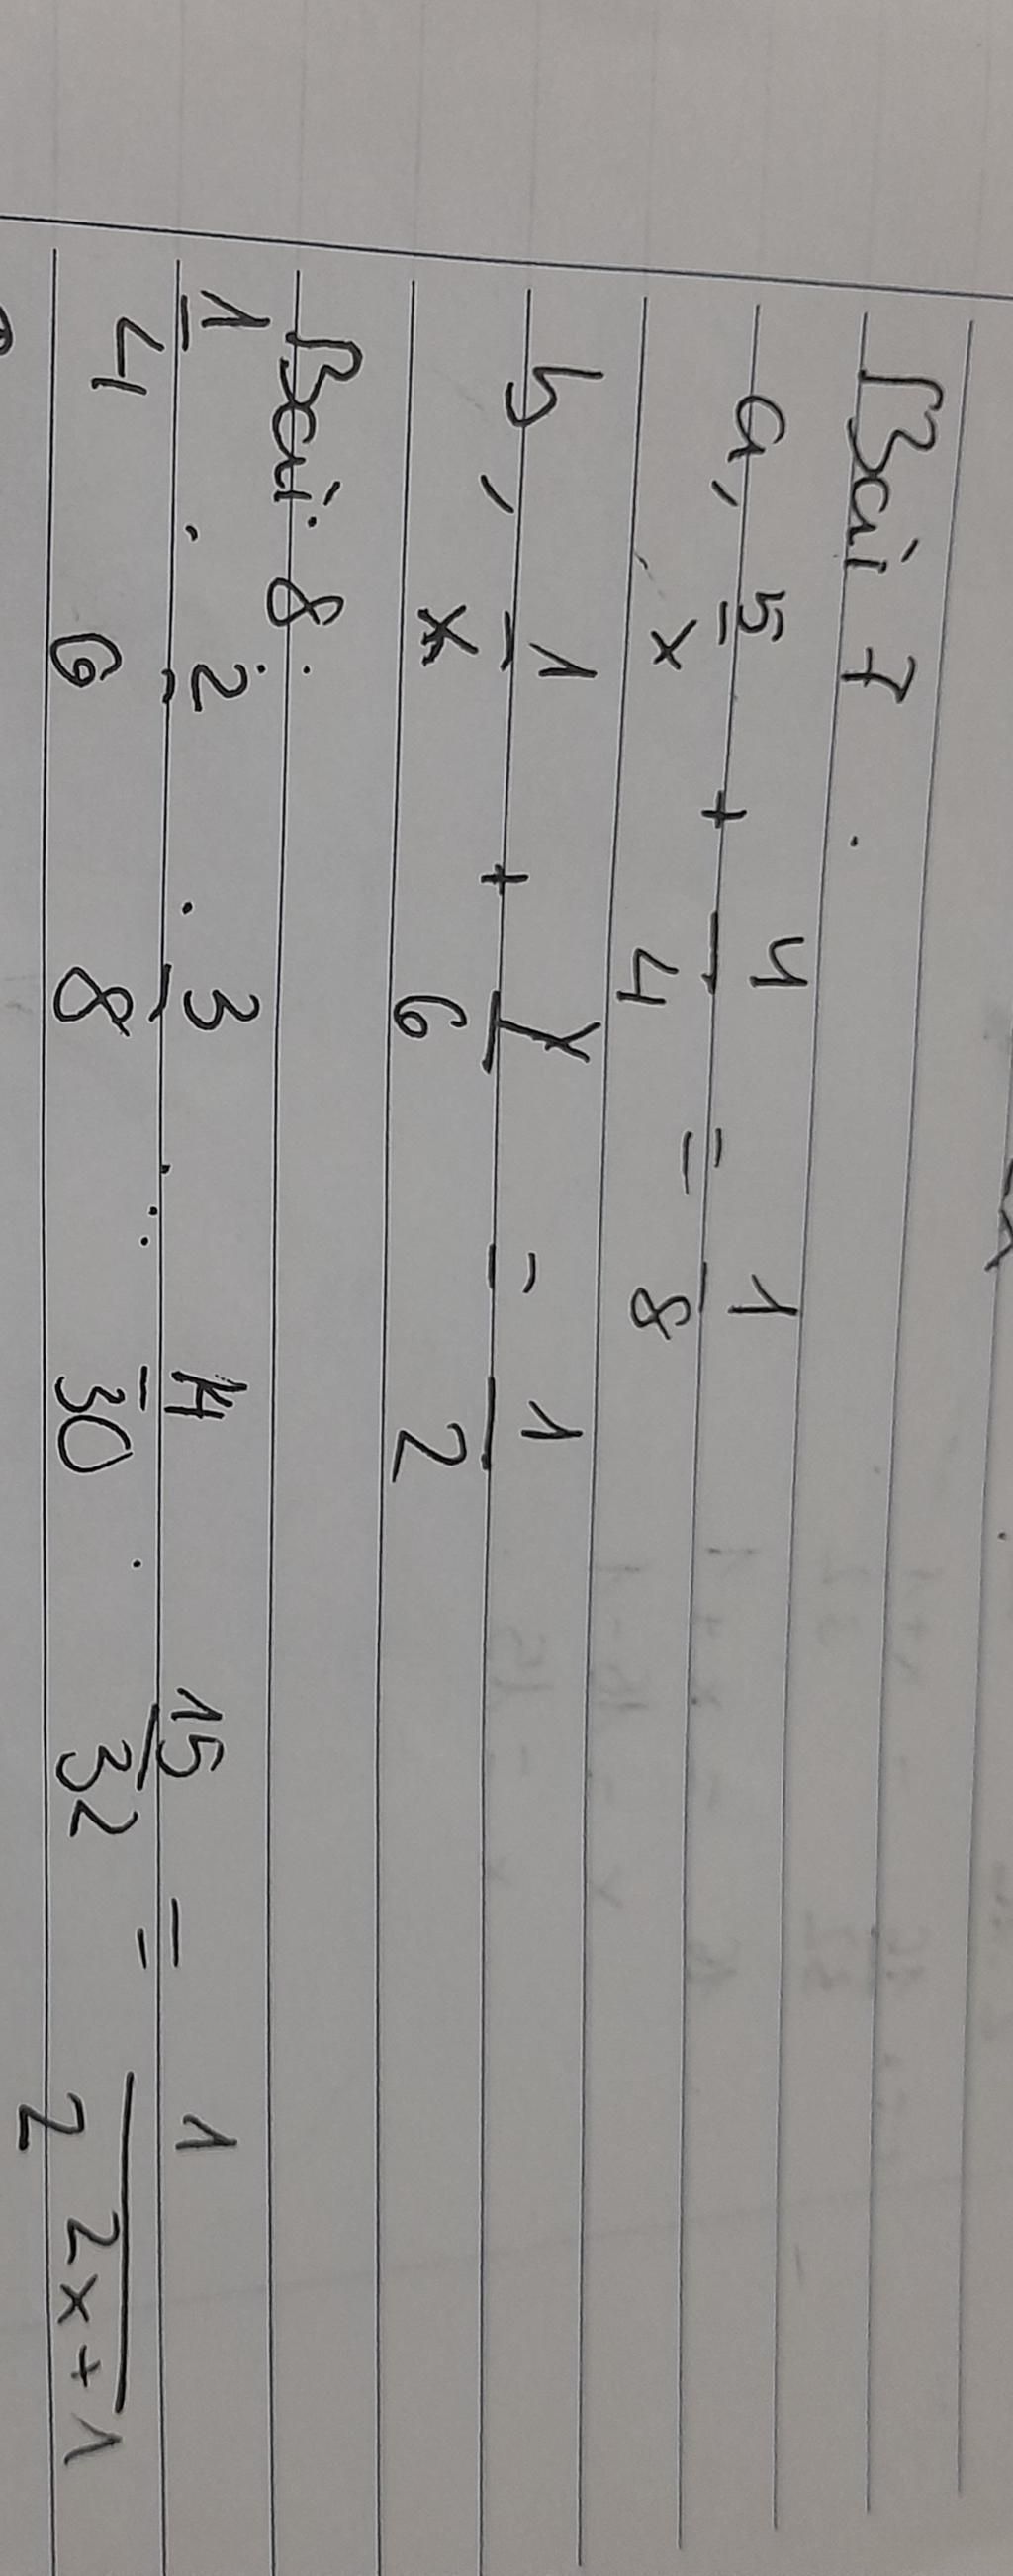 Bài 7
a, 5/x + y/4 = 1/8
b, 1/x + y/6 = 1/2
Bài 8
1/4 . 2/6 . 3/8 ... 14/30 . 15/32 = 1/2^2x+1